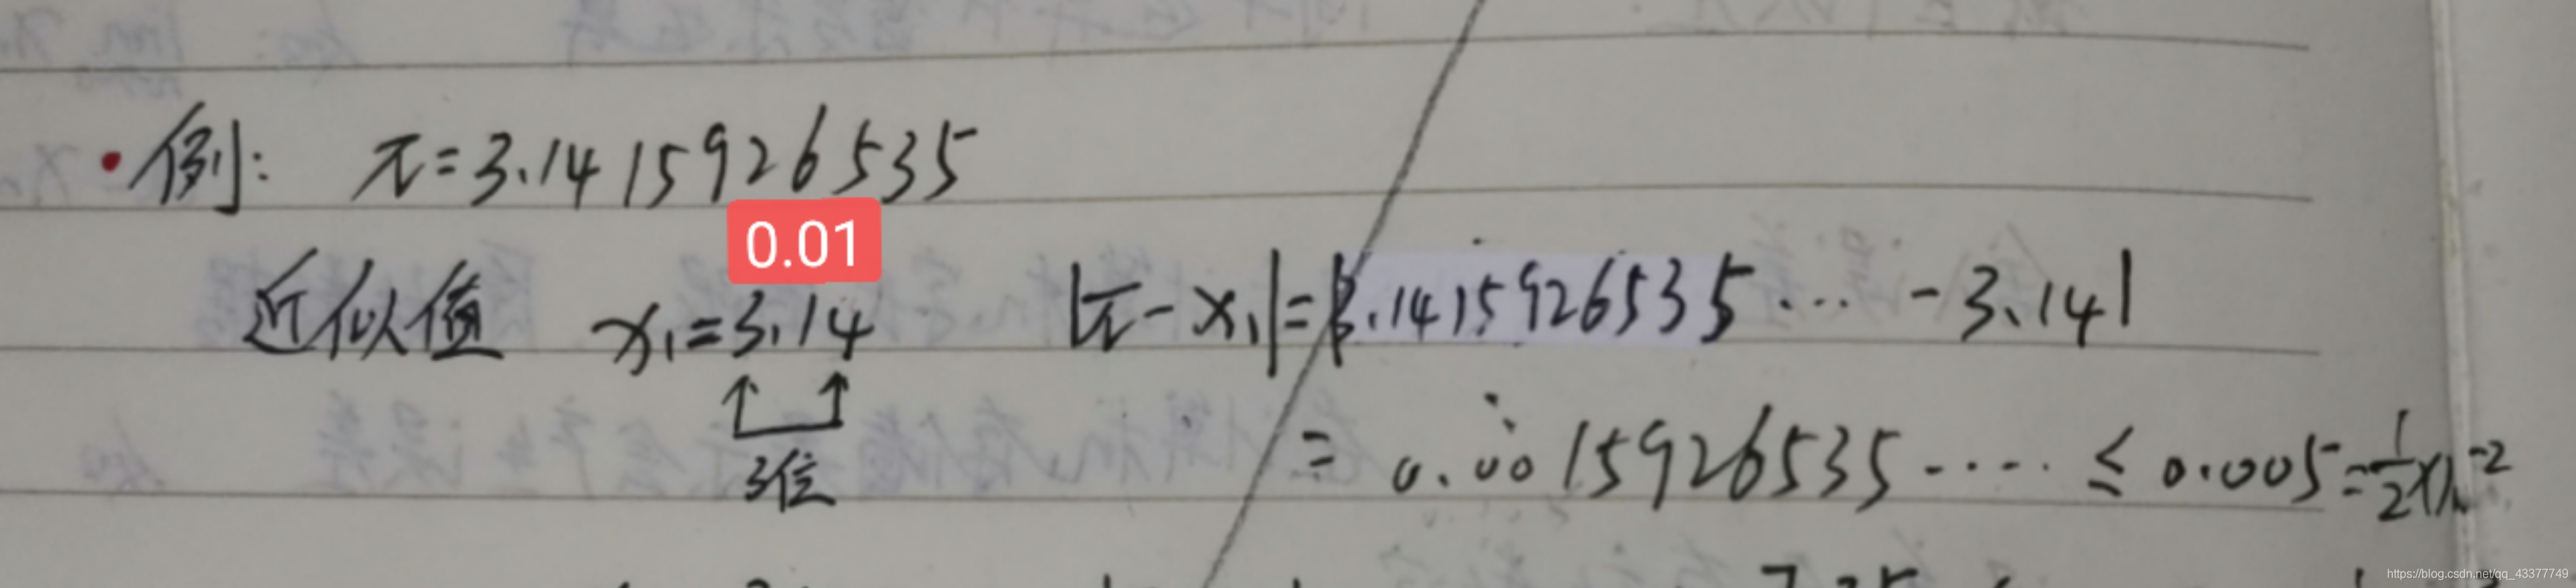 ·例: π=3.1415926535
0.01
近似值 x₁=3.14 |π-x₁|=|3.1415926535···-3.14|
3位
=0.0015926535·····≤0.005=½×10⁻²
https://blog.csdn.net/qq_43377749